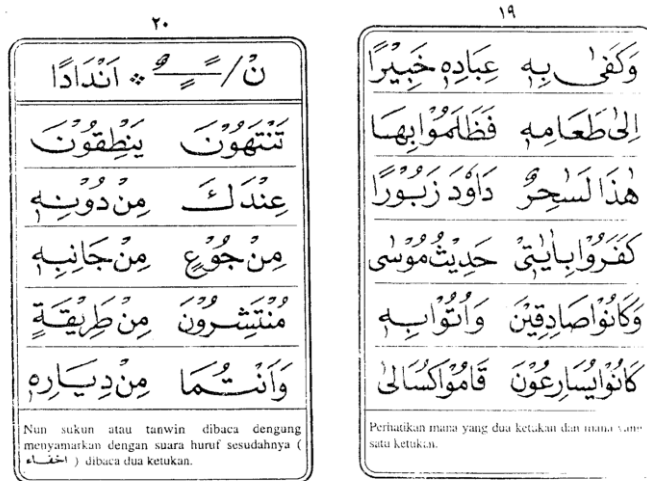 ١٩
وَكَفٰى بِهٖ عِبَادِهٖ خَبِيْرًا
اِلٰى طَعَامِهٖ فَظَلَمُوْا بِهَا
هٰذَا لَسٰحِرٌ دَاوٗدَ زَبُوْرًا
كَفَرُوْا بِاٰيٰتِيْ حَدِيْثُ مُوْسٰى
وَكَانُوْا صَادِقِيْنَ وَاُتُوْا بِهٖ
كَانُوْا يُسَارِعُوْنَ قَامُوْا كُسَالٰى
Perhatikan mana yang dua ketukan dan mana yang
satu ketukan.
٢٠
نْ / ـًـٍـٌ اَنْدَادًا
تَنْتَهُوْنَ يَنْطِقُوْنَ
عِنْدَكَ مِنْ دُوْنِهٖ
مِنْ جُوْعٍ مِنْ جَانِبِهٖ
مُنْتَشِرُوْنَ مِنْ طَرِيْقَةٍ
وَاَنْتُمَا مِنْ دِيَارِهٖ
Nun sukun atau tanwin dibaca dengung
menyamarkan dengan suara huruf sesudahnya (
اخفاء ) dibaca dua ketukan.